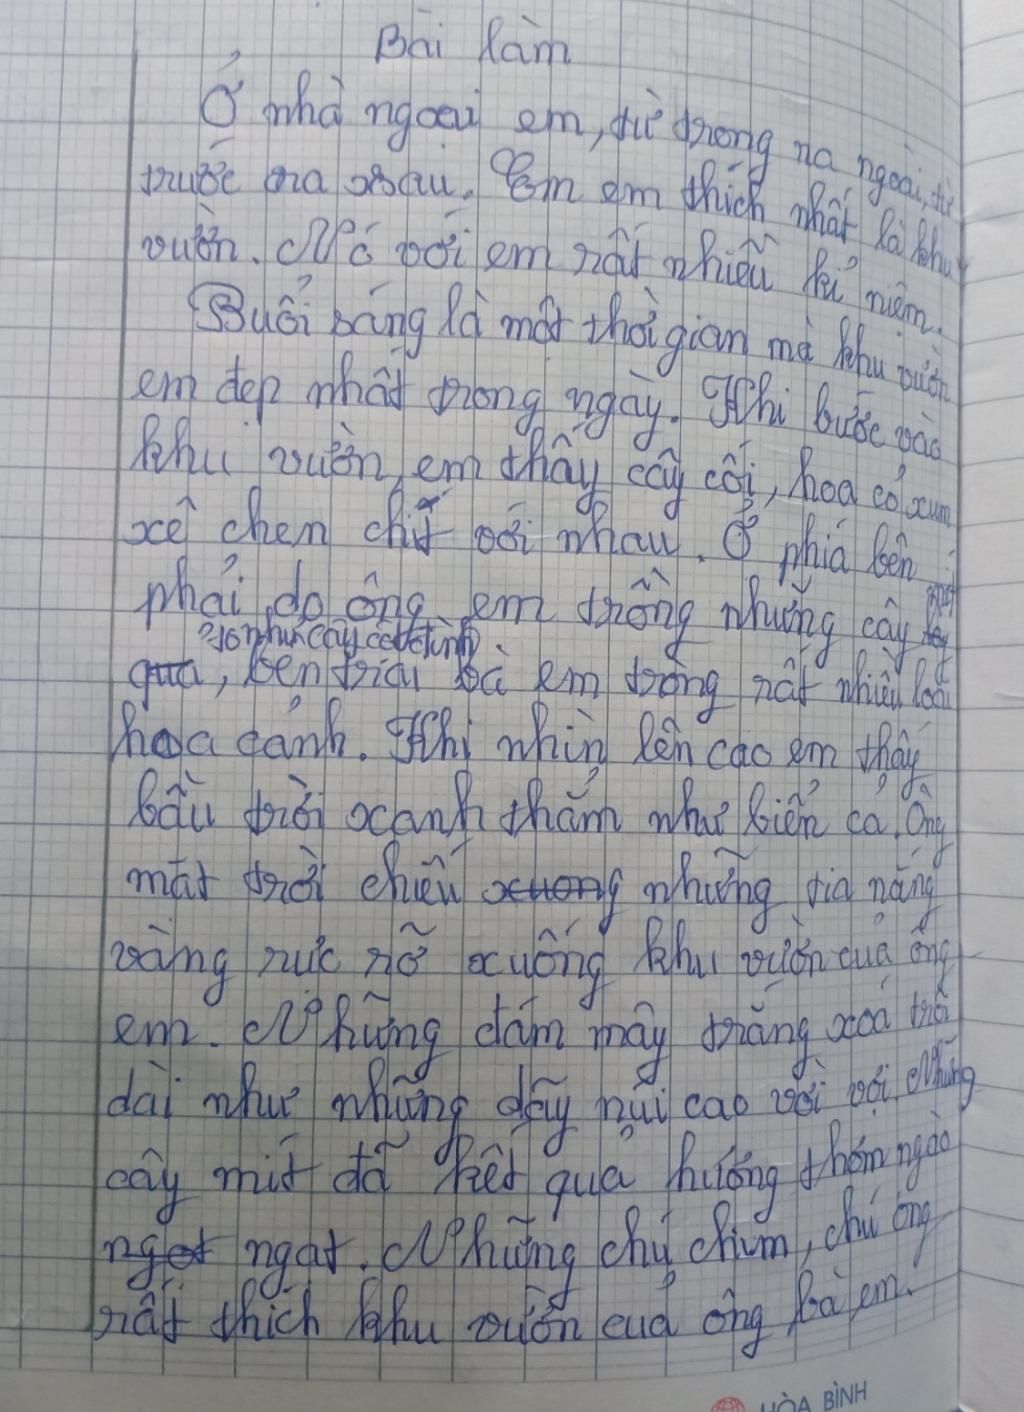 Bài làm
Ở nhà ngoại em, từ trong ra ngoài, từ
trước ra sau. Em em thích nhất là khu
vườn. Nó với em rất nhiều kỉ niệm.
Buổi sáng là một thời gian mà khu vườn
em đẹp nhất trong ngày. Khi bước vào
khu vườn, em thấy cây cối, hoa cỏ xum
xê chen chít với nhau. Ở phía bên
phải do ông em trồng những cây
quả, bên trái bà em trồng rất nhiều loài
hoa cảnh. Khi nhìn lên cao em thấy
bầu trời xanh thẳm như biển cả. Ông
mặt trời chiếu những tia nắng
vàng rực rỡ xuống khu vườn của ông
em. Những đám mây trắng xoá trôi
dài như những dãy núi cao vời vợi. Những
cây mít đã kết quả hương thơm ngào
ngạt. Những chú chim, chú ong
rất thích khu vườn của ông bà em.
HÒA BÌNH